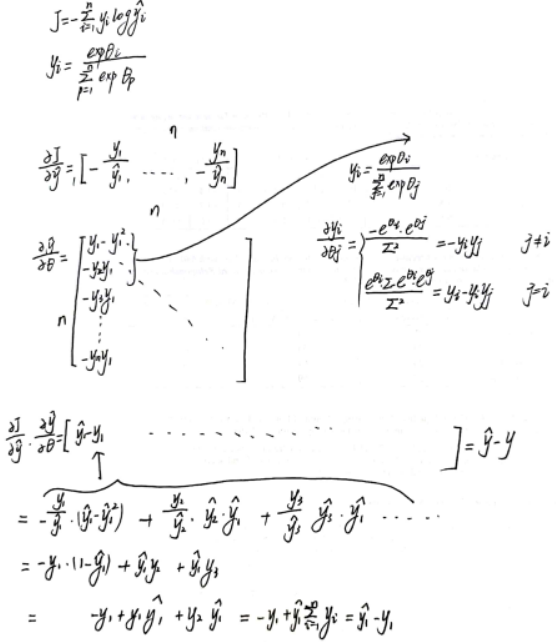 J=-\sum_{i=1}^{n} y_i log ŷ_i
y_i = \frac{exp θ_i}{\sum_{p=1}^{n} exp θ_p}
n
\frac{∂J}{∂ŷ} = 1 [ -\frac{y_1}{ŷ_1}, ......, -\frac{y_n}{ŷ_n} ]
y_i = \frac{exp θ_i}{\sum_{j=1}^{n} exp θ_j}
n
\frac{∂ŷ}{∂θ} = n [ y_1 - y_1^2
-y_2y_1
-y_3y_1
⋮
-y_ny_1 ]
\frac{∂y_i}{∂θ_j} = { \frac{-e^{θ_i} \cdot e^{θ_j}}{Σ^2} = -y_iy_j j≠i
\frac{e^{θ_i} Σ - e^{θ_i} e^{θ_j}}{Σ^2} = y_i - y_iy_j j=i
\frac{∂J}{∂ŷ} \cdot \frac{∂ŷ}{∂θ} = [ ŷ_1 - y_1 ........ ] = ŷ - y
= -\frac{y_1}{ŷ_1} \cdot (ŷ_1 - ŷ_1^2) + \frac{y_2}{ŷ_2} \cdot ŷ_2 \cdot ŷ_1 + \frac{y_3}{ŷ_3} ŷ_3 \cdot ŷ_1 .....
= -y_1 \cdot (1 - ŷ_1) + ŷ_1y_2 + ŷ_1y_3
= -y_1 + y_1ŷ_1 + y_2ŷ_1 = -y_1 + ŷ_1 \sum_{i=1}^{n} y_i = ŷ_1 - y_1